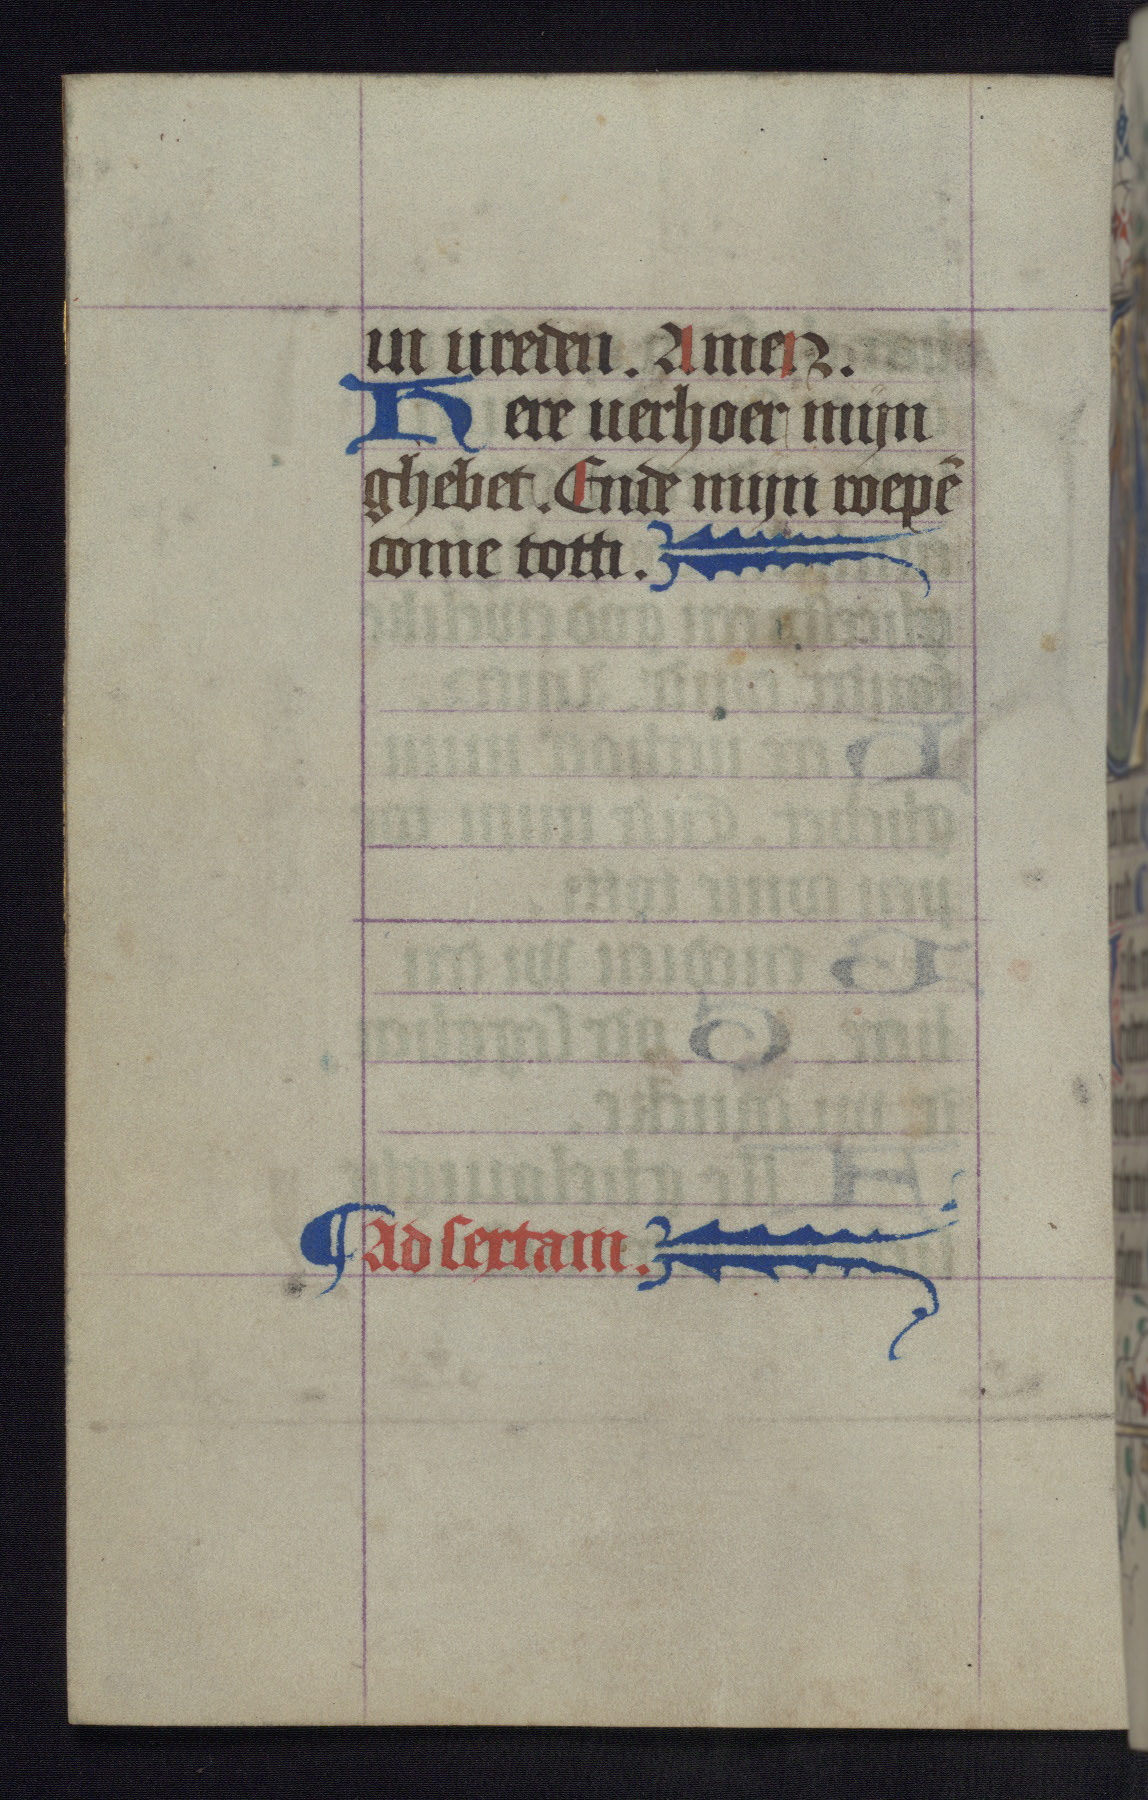 in vreden. Amen.
Here verhoer mijn
ghebet. Ende mijn roepē
come totti.
¶ Ad sextam.